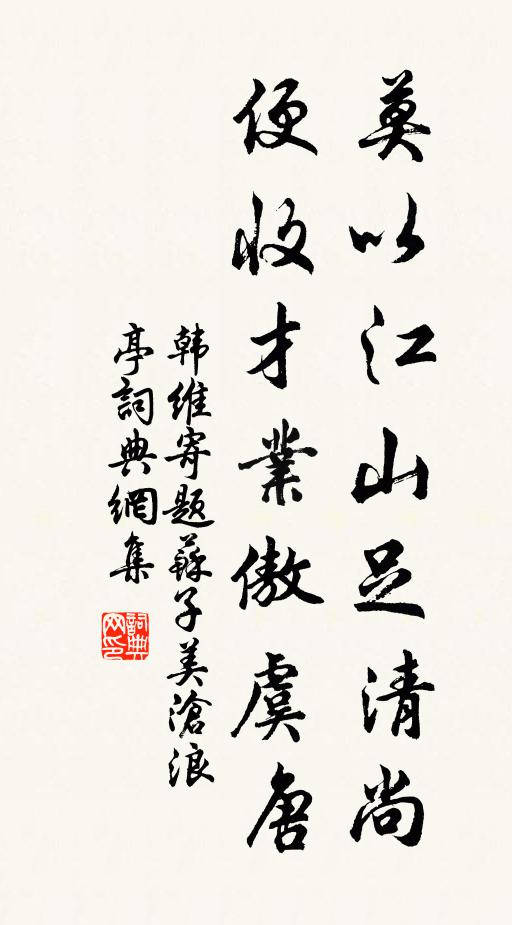 莫以江山足清尚
便收才業傲虞唐
韩維寄題蘇子美滄浪
亭詞典網集
詞典网印